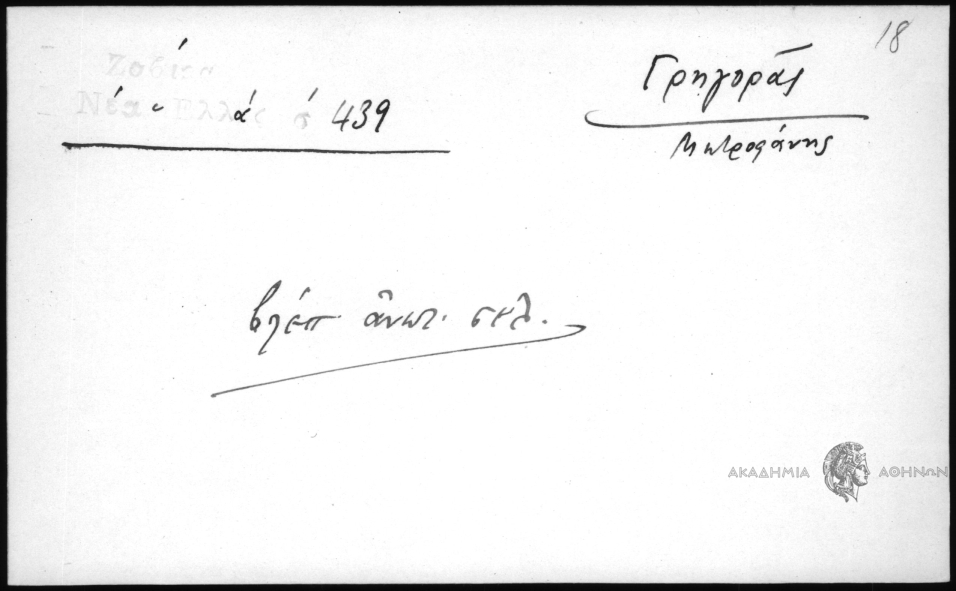 18
Ζαβίρα
Νέα Ἑλλάς σ 439
Γρηγορᾶς
Μητροφάνης
βλέπ. ἄνωτ. σελ.
ΑΚΑΔΗΜΙΑ ΑΘΗΝΩΝ